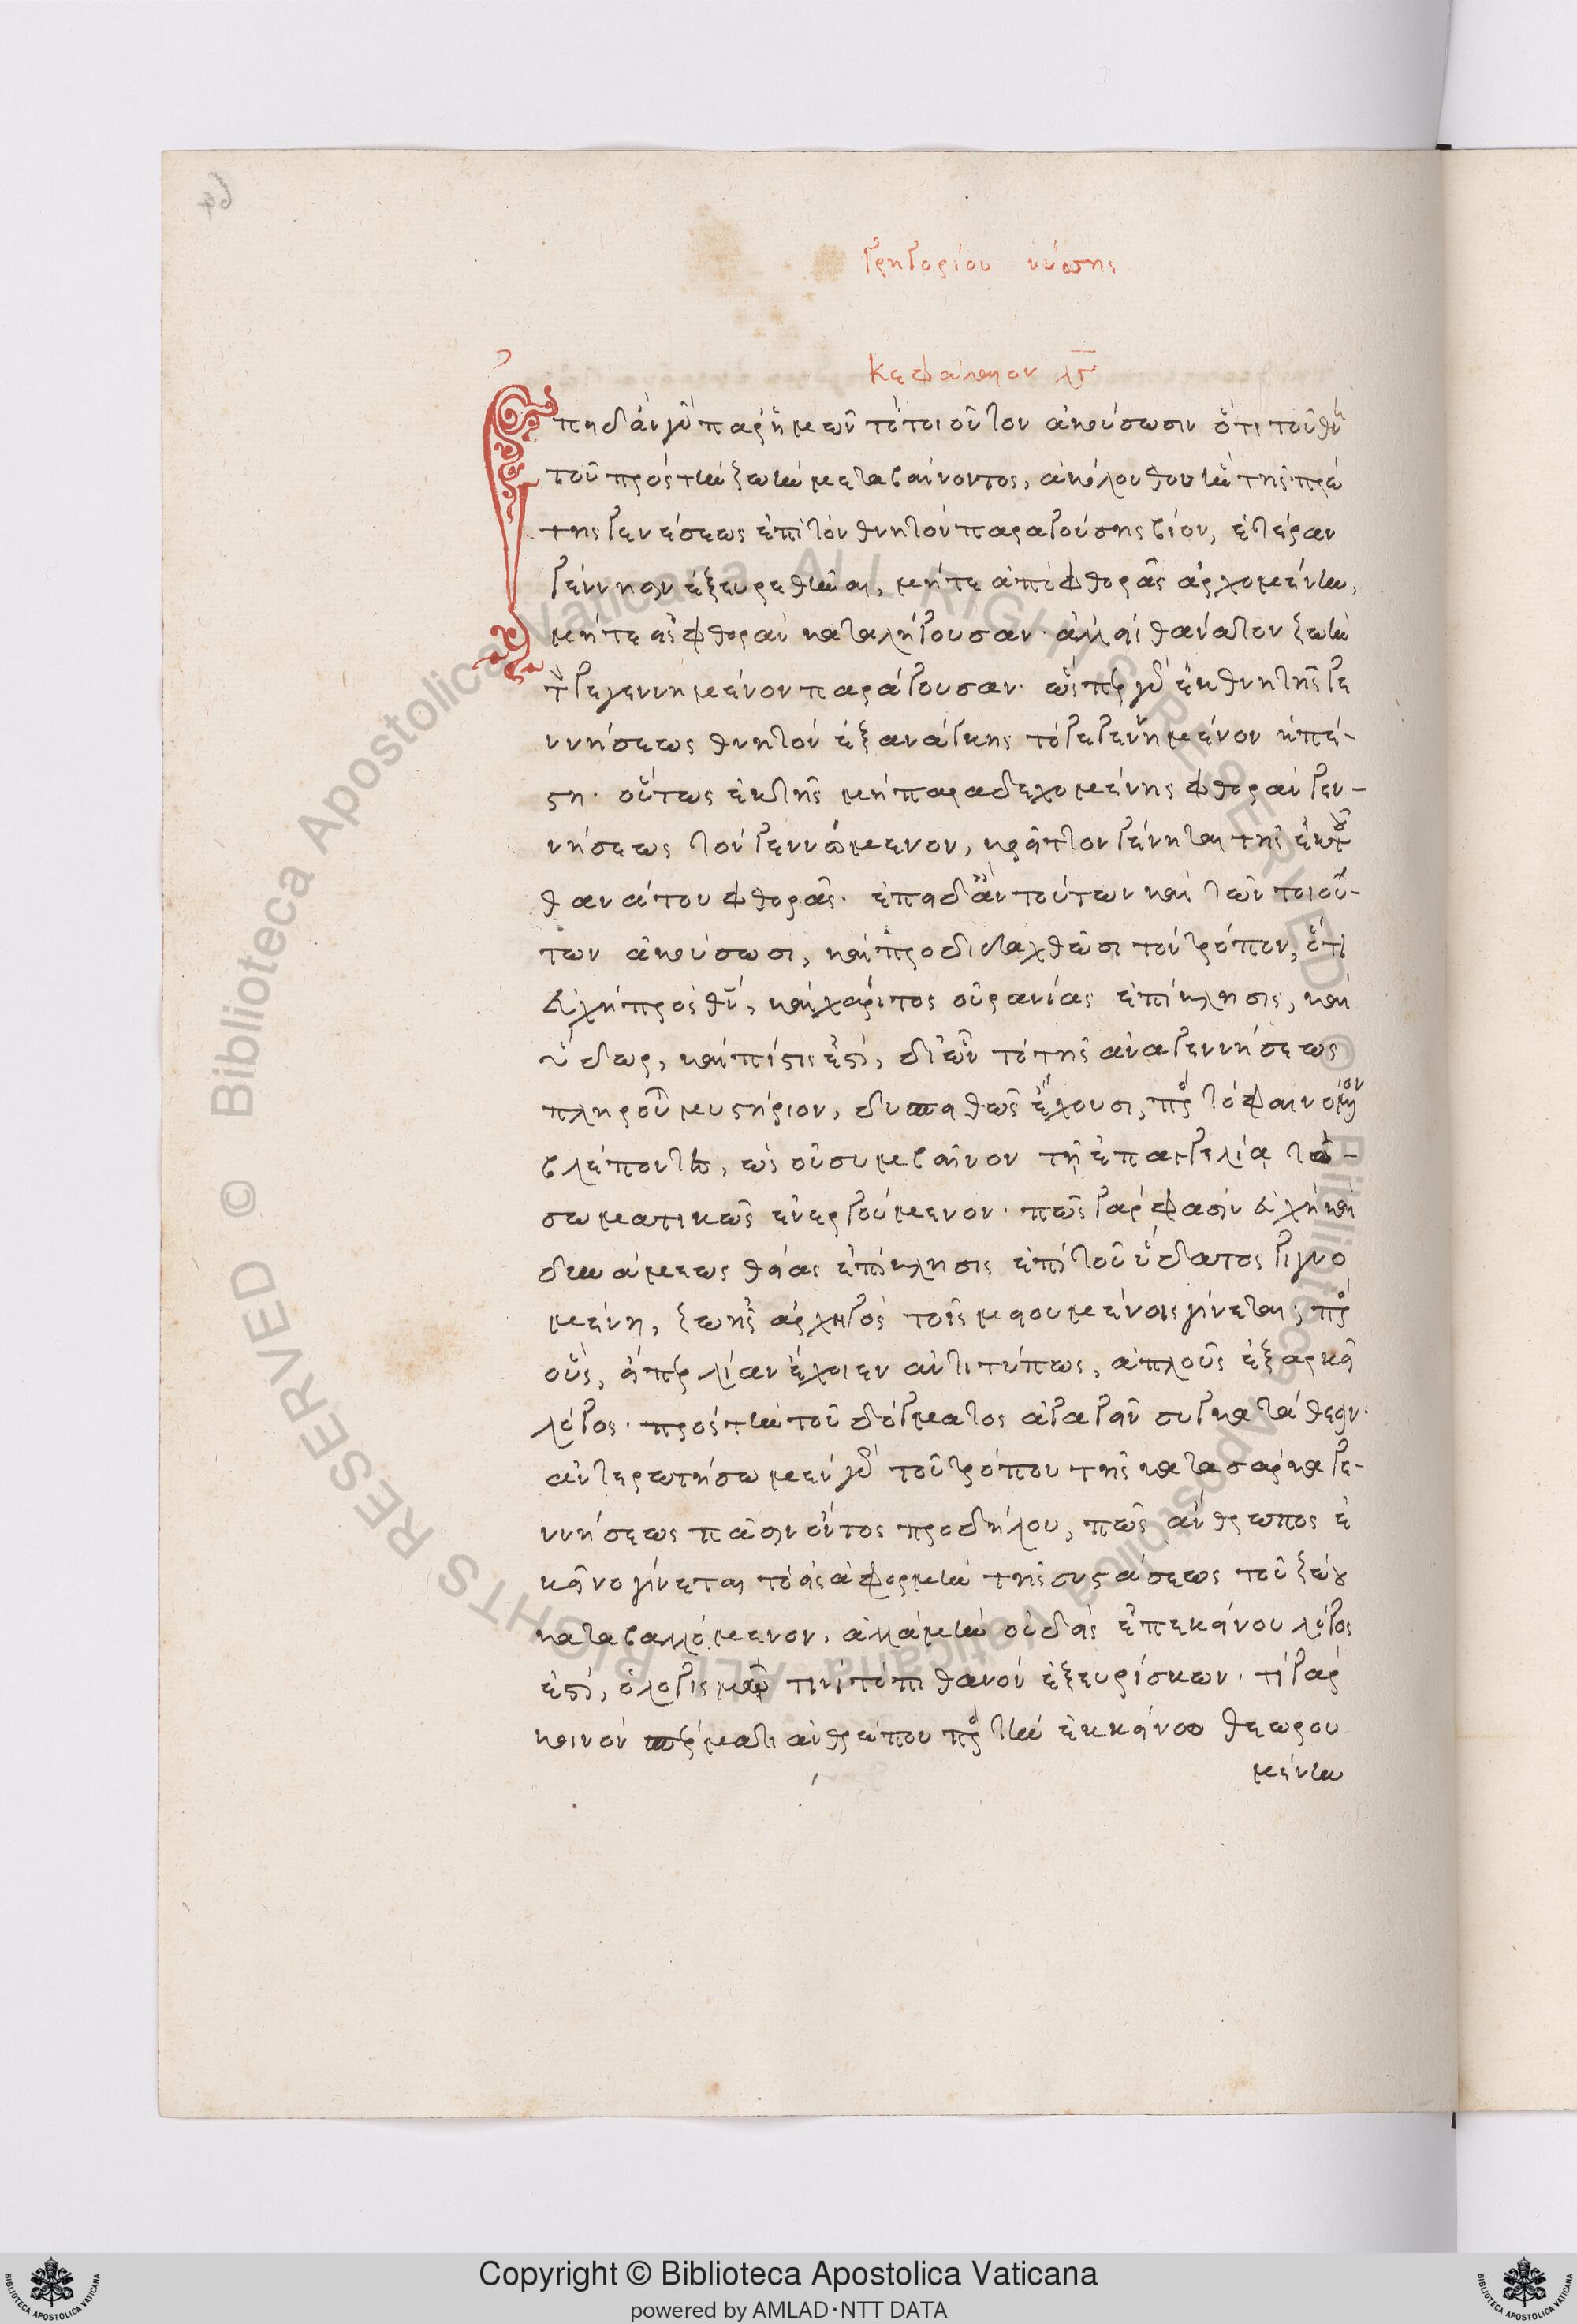 Γρηγορίου νύσσης
Κεφάλαιον λγ
Ἐπειδὰν γοῦν παρ' ἡμῶν τὸ τοιοῦτον ἀκούσωσιν ὅτι τοῦ θνητοῦ
τοῦ πρὸς τὴν ζωὴν μεταβαίνοντος, ἀκόλουθον ἦν τῆς πρώ
της γενέσεως ἐπὶ τὸν θνητὸν παραγούσης βίον, ἑτέραν
γέννησιν ἐξευρεθῆναι, μήτε ἀπὸ φθορᾶς ἀρχομένην,
μήτε εἰς φθορὰν καταλήγουσαν· ἀλλ' εἰς ἀθάνατον ζωὴν
τὸν γεγεννημένον παράγουσαν· ὥσπερ γὰρ ἐκ θνητῆς γε
ννήσεως θνητὸν ἐξ ανάγκης τὸ γεγεννημένον ὑπέ-
στη· οὕτως ἐκ τῆς μὴ παραδεχομένης φθορὰν γεν-
νήσεως τὸν γεννώμενον, κρεῖττον γένηται τῆς ἐκ τοῦ
θανάτου φθορᾶς· ἐπειδὰν τούτων καὶ τῶν τοιού-
των ἀκούσωσι, καὶ προδιδαχθῶσι τὸν τρόπον, ὅτι
εὐχὴ πρὸς θεὸν, καὶ χάριτος οὐρανίας ἐπίκλησις, καὶ
ὕδωρ, καὶ πίστις ἐστὶ, δι' ὧν τὸ τῆς ἀναγεννήσεως
πληροῦται μυστήριον, δυσπειθῶς ἔχουσι, πρὸς τὸ φαινόμενον
βλέποντες, ὡς οὐ συμβαῖνον τῇ ἐπαγγελίᾳ τὸ
σωματικῶς ἐνεργούμενον· πῶς γάρ φασιν εὐχὴ καὶ
δυνάμεως θείας ἐπίκλησις ἐπὶ τοῦ ὕδατος γιγνο
μένη, ζωῆς ἀρχηγὸς τοῖς μυουμένοις γίνεται· πρὸς
οὓς, εἴπερ λίαν ἔχοιεν ἀντιτύπως, ἁπλοῦς ἐξαρκεῖ
λόγος· πρὸς τὴν τοῦ δόγματος ἀγαγεῖν συγκατάθεσιν·
ἀντερωτήσωμεν γὰρ τοῦ τρόπου τῆς κατα σάρκα γε-
ννήσεως πᾶσιν ὄντος προδήλου, πῶς ἄνθρωπος ἐ
κεῖνο γίνεται τὸ εἰς ἀφορμὴν τῆς συστάσεως τοῦ ζώου
καταβαλλόμενον, ἀλλὰ μὴν οὐδεὶς ἐπ' ἐκείνου λόγος
ἐστὶ, ὁ λογισμῷ τινὶ τὸ πιθανὸν ἐξευρίσκων· τί γὰρ
κοινὸν σπέρματι ἀνθρώπου πρὸς τὴν ἐκκεῖνο θεωρου
μένην